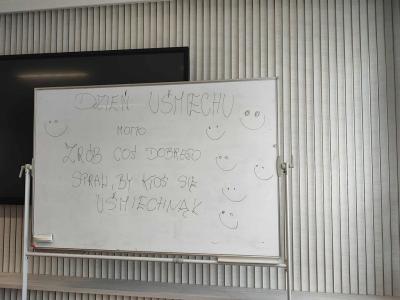 DZIEŃ UŚMIECHU
MOTTO
ZRÓB COŚ DOBREGO
SPRAW, BY KTOŚ SIĘ
UŚMIECHNĄŁ